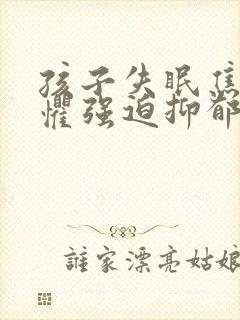 孩子失眠焦
懼强迫抑郁
誰家漂亮姑娘